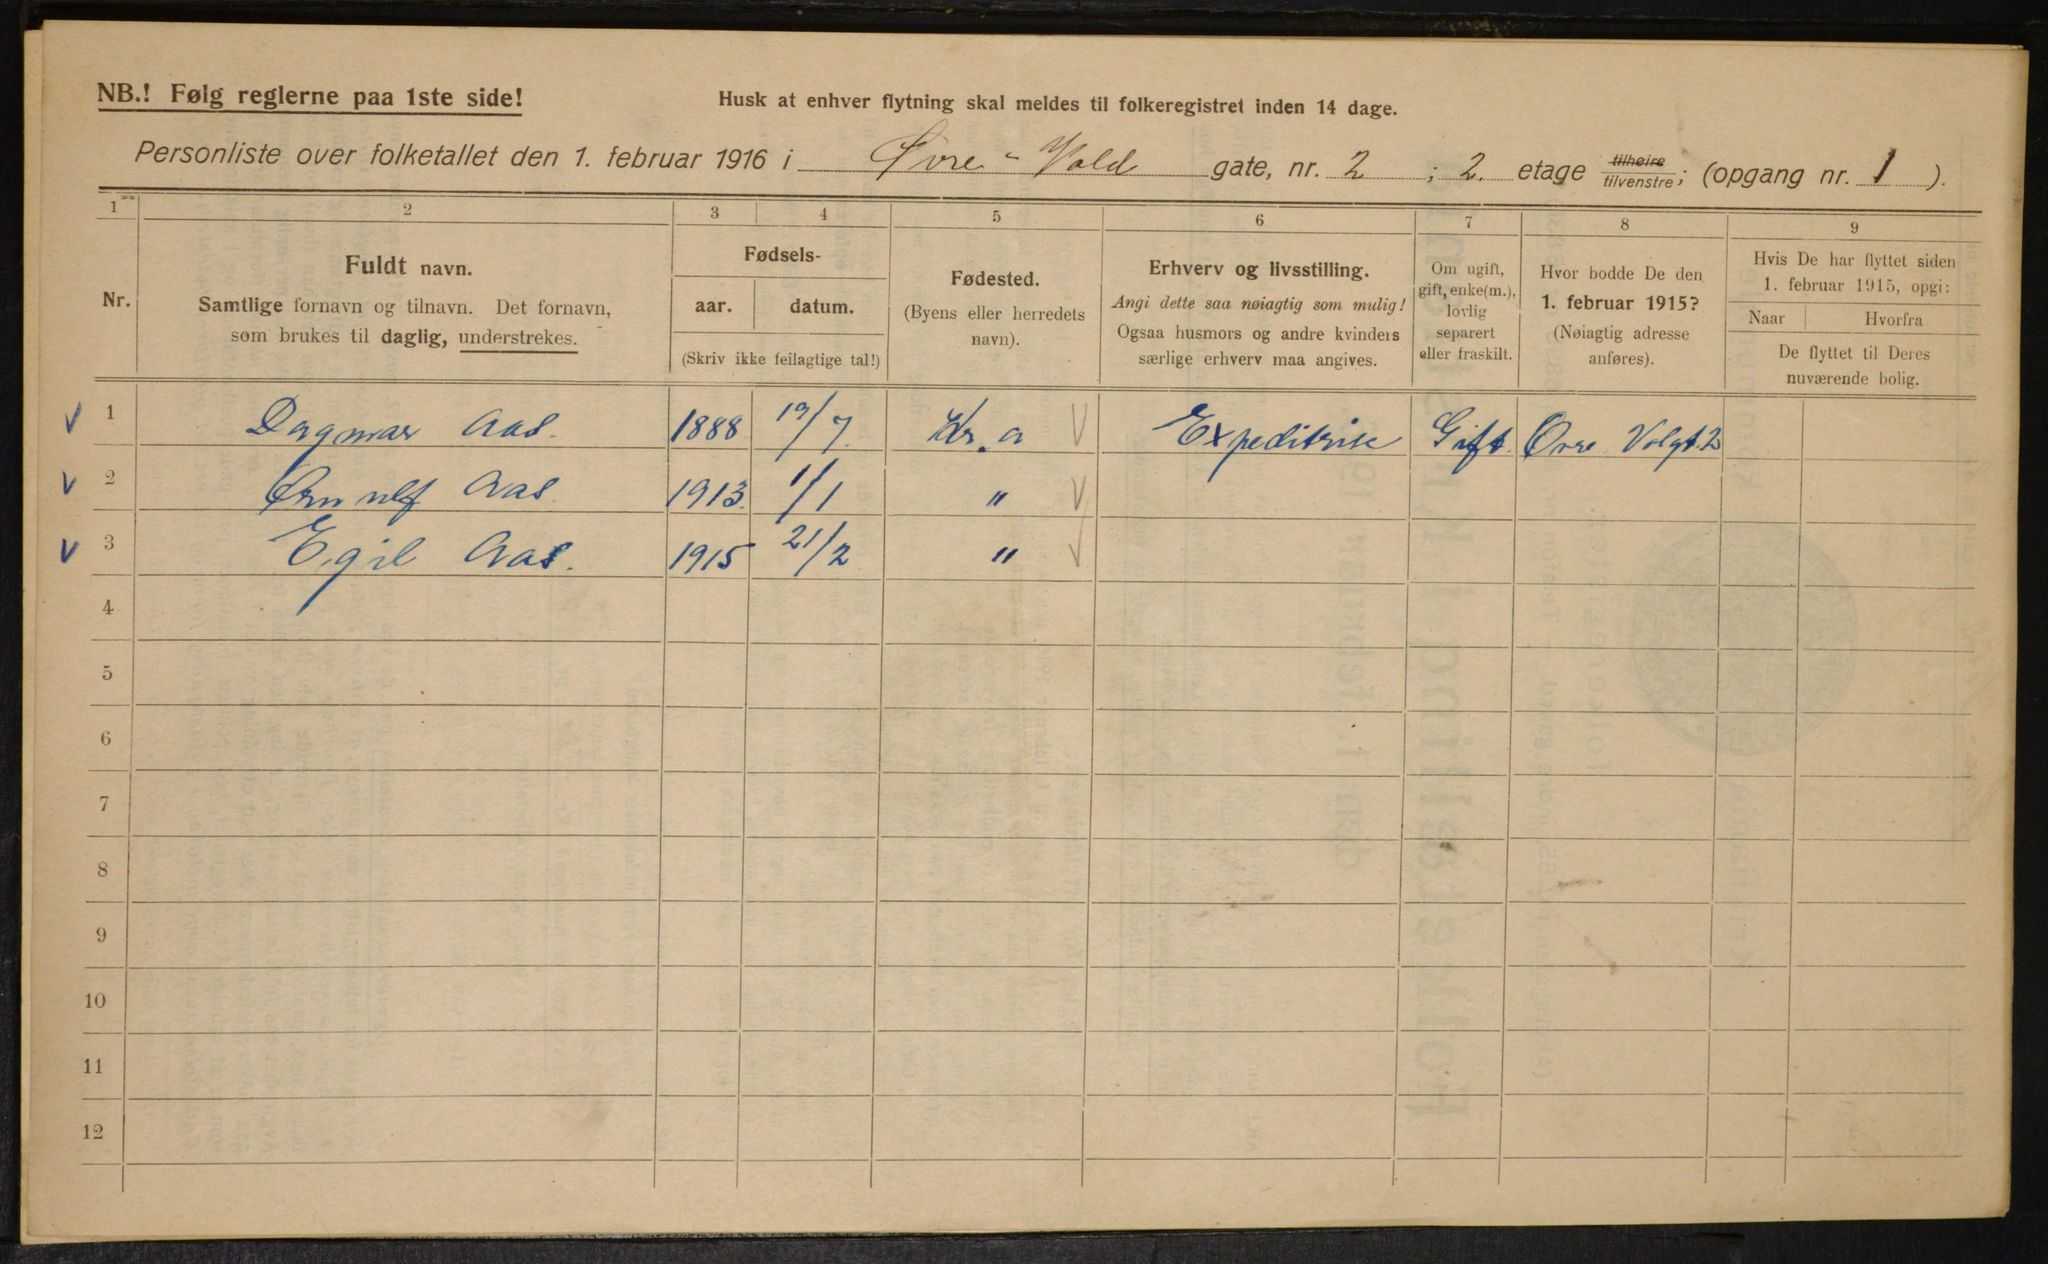 NB.! Følg reglerne paa 1ste side!
Husk at enhver flytning skal meldes til folkeregistret inden 14 dage.
Personliste over folketallet den 1. februar 1916 i Øvre - Vold gate, nr. 2 ; 2. etage tilhøire/tilvenstre; (opgang nr. 1 ).
1 2 3 4 5 6 7 8 9
Nr.
Fuldt navn.
Samtlige fornavn og tilnavn. Det fornavn,
som brukes til daglig, understrekes.
Fødsels-
aar. datum.
(Skriv ikke feilagtige tal!)
Fødested.
(Byens eller herredets
navn).
Erhverv og livsstilling.
Angi dette saa nøiagtig som mulig!
Ogsaa husmors og andre kvinders
særlige erhverv maa angives.
Om ugift,
gift, enke(m.),
lovlig
separert
eller fraskilt.
Hvor bodde De den
1. februar 1915?
(Nøiagtig adresse
anføres).
Hvis De har flyttet siden
1. februar 1915, opgi:
Naar Hvorfra
De flyttet til Deres
nuværende bolig.
1 Dagmar Aas. 1888 19/7 Kr.a Expeditrise Gift. Øvre Volgt. 2
2 Ørnulf Aas 1913. 1/1 "
3 Egil Aas. 1915 21/2 "
4
5
6
7
8
9
10
11
12